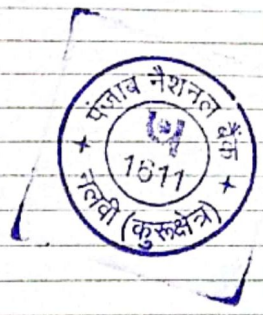 पंजाब नैशनल बैंक
1611
नलवी (कुरूक्षेत्र)